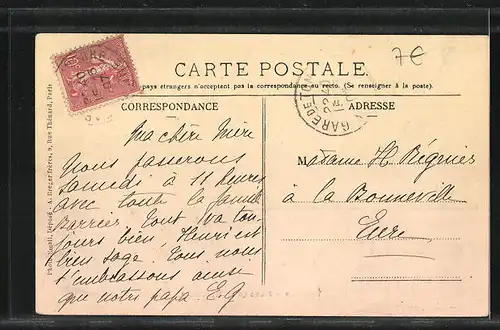 7€
CARTE POSTALE
pays étrangers n'acceptent pas la correspondance au recto. (Se renseigner à la poste).
CORRESPONDANCE
ADRESSE
Ma chère Mère
Nous passerons
Samedi à 11 heures
avec toute la famille
Barrier. Tout va tou-
jours bien, Henri est
bien sage. Tous, nous
t'embrassons ainsi
que notre papa. E.
Madame H Régnier
à la Bonneville
Eure
GARE DE
A. Breger Frères, 9, Rue Thénard, Paris